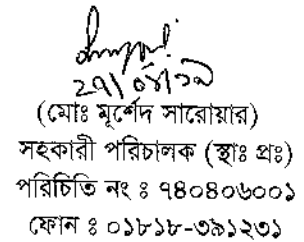 ২৭/০৪/১৯
(মোঃ মূর্শেদ সারোয়ার)
সহকারী পরিচালক (স্থাঃ প্রঃ)
পরিচিতি নং ঃ ৭৪০৪০৬০০১
ফোন ঃ ০১৮১৮-৩৯১২৩১